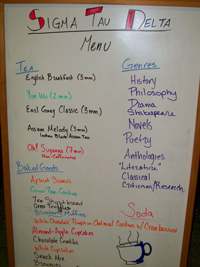 SIGMA TAU DELTA
Menu
Tea
English Breakfast (3min)
Yun Wu (2min)
Earl Grey Classic (3min)
Assam Melody (3min)
Indian Black/Assam Tea
Oh! Susanna (7min)
Non-Caffeinated
Baked Goods
Apricot Scones
Green Tea Cookies
Tea Shortbread
Oreo Truffles
Blueberry Muffins
White Chocolate Pumpkin Oatmeal Cookies w/ Cranberries
Almond-Apple Cupcakes
Chocolate Crinkles
White Cupcakes
Snack Mix
Brownies
Genres
History
Philosophy
Drama
Shakespeare
Novels
Poetry
Anthologies
"Literature"
Classical
Criticism/Research
Soda